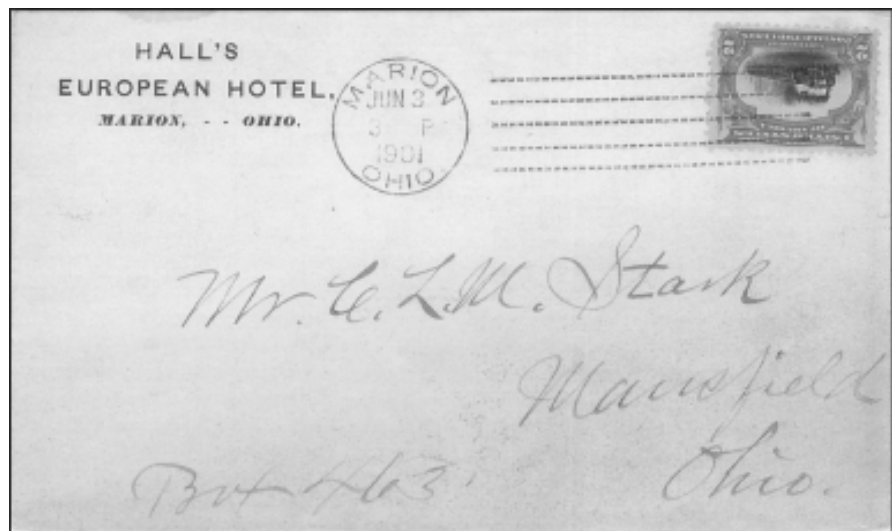 HALL'S
EUROPEAN HOTEL,
MARION, - - OHIO.
MARION
JUN 3
3 P
1901
OHIO.
2 2
Mr. C. L. M. Stark
Mansfield
Ohio.
Box 463